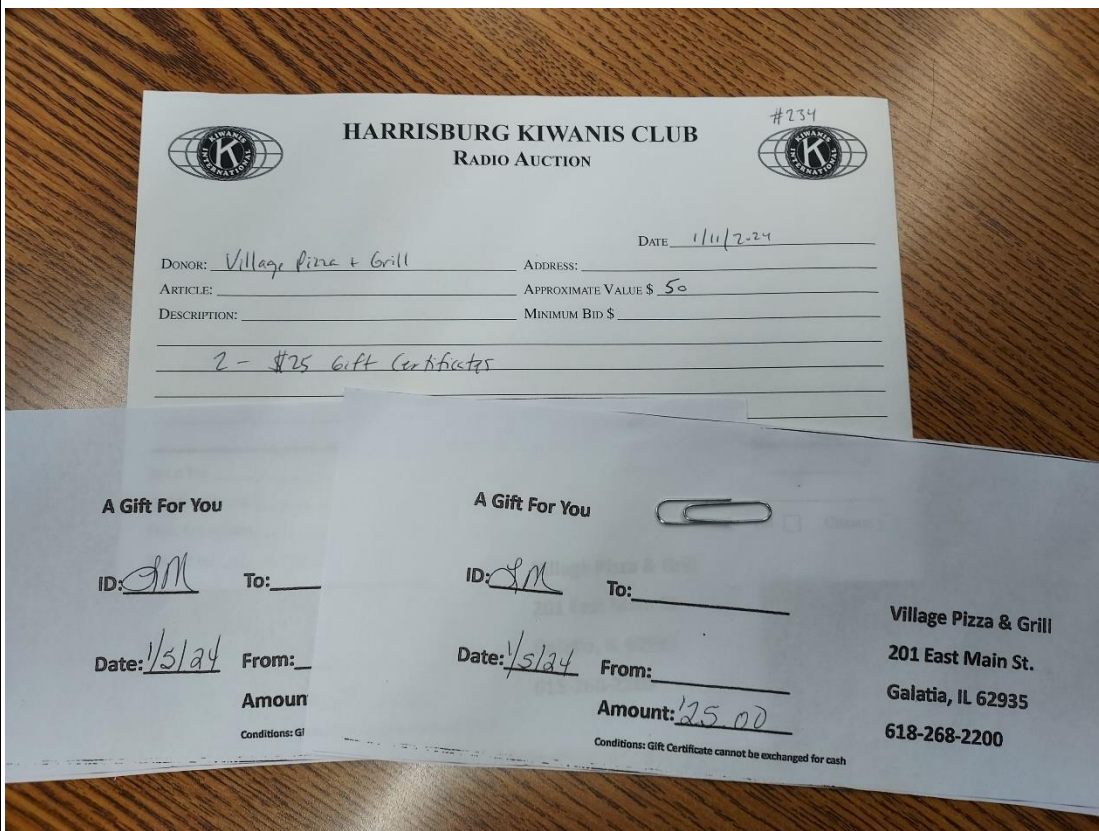 #234
HARRISBURG KIWANIS CLUB
RADIO AUCTION
KIWANIS INTERNATIONAL K
KIWANIS INTERNATIONAL K
DATE 1/11/2024
DONOR: Village Pizza + Grill ADDRESS:
ARTICLE: APPROXIMATE VALUE $ 50
DESCRIPTION: MINIMUM BID $
2 - $25 Gift Certificates
A Gift For You
ID: JM To:
Date: 1/5/24 From:
Amoun
Conditions: Gi
A Gift For You
ID: JM To:
Date: 1/5/24 From:
Amount: 25.00
Conditions: Gift Certificate cannot be exchanged for cash
Village Pizza & Grill
201 East Main St.
Galatia, IL 62935
618-268-2200